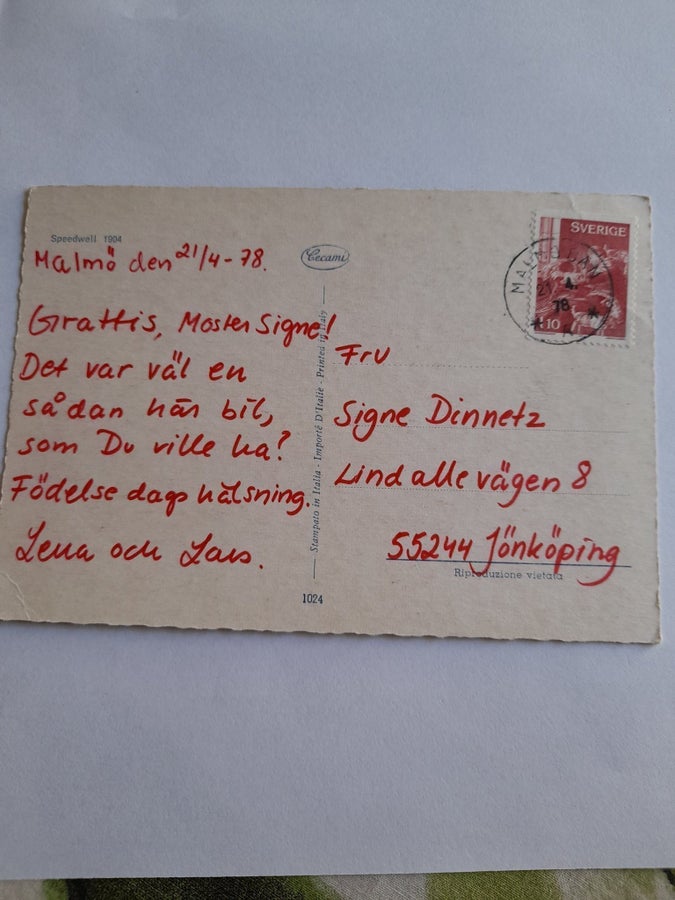 Speedwell 1904
Malmö den 21/4-78.
Grattis, Moster Signe!
Det var väl en
sådan här bil,
som Du ville ha?
Födelse dags hälsning.
Lena och Lars.
Cecami
Stampato in Italia - Importé D'Italie - Printed in Italy
1024
SVERIGE
10
MALMÖ BAN
21. 4.
78
Fru
Signe Dinnetz
Lindallevägen 8
55244 Jönköping
Riproduzione vietata